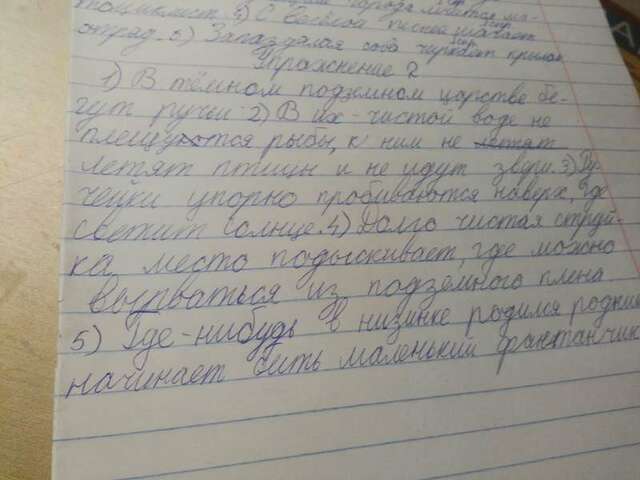 города мчится мо-
тоциклист. 5) С весёлой песней шагает
отряд. 6) Запоздалая сова чиркает крылом
Упражнение 2
1) В тёмном подземном царстве бе-
гут ручьи. 2) В их - чистой воде не
плещутся рыбы, к ним не летят
летят птицы и не идут звери. 3) Ру-
чейки упорно пробиваются наверх, где
светит солнце. 4) Долго чистая струй-
ка место подыскивает, где можно
вырваться из подземного плена
5) Где-нибудь в низинке родился родник
начинает бить маленький фантанчик